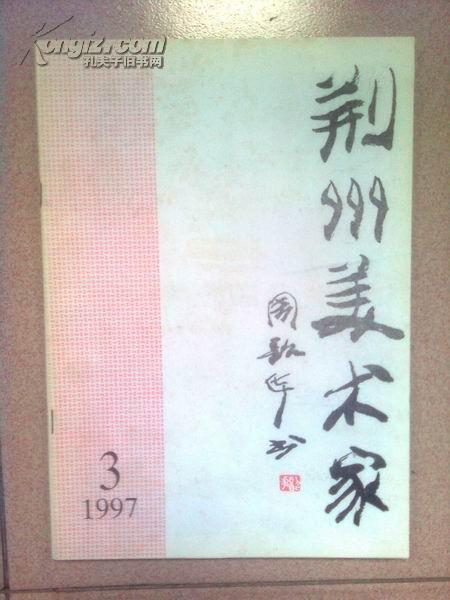 Kongfz.com
孔夫子旧书网
荆州美术家
周韶华题
3
1997